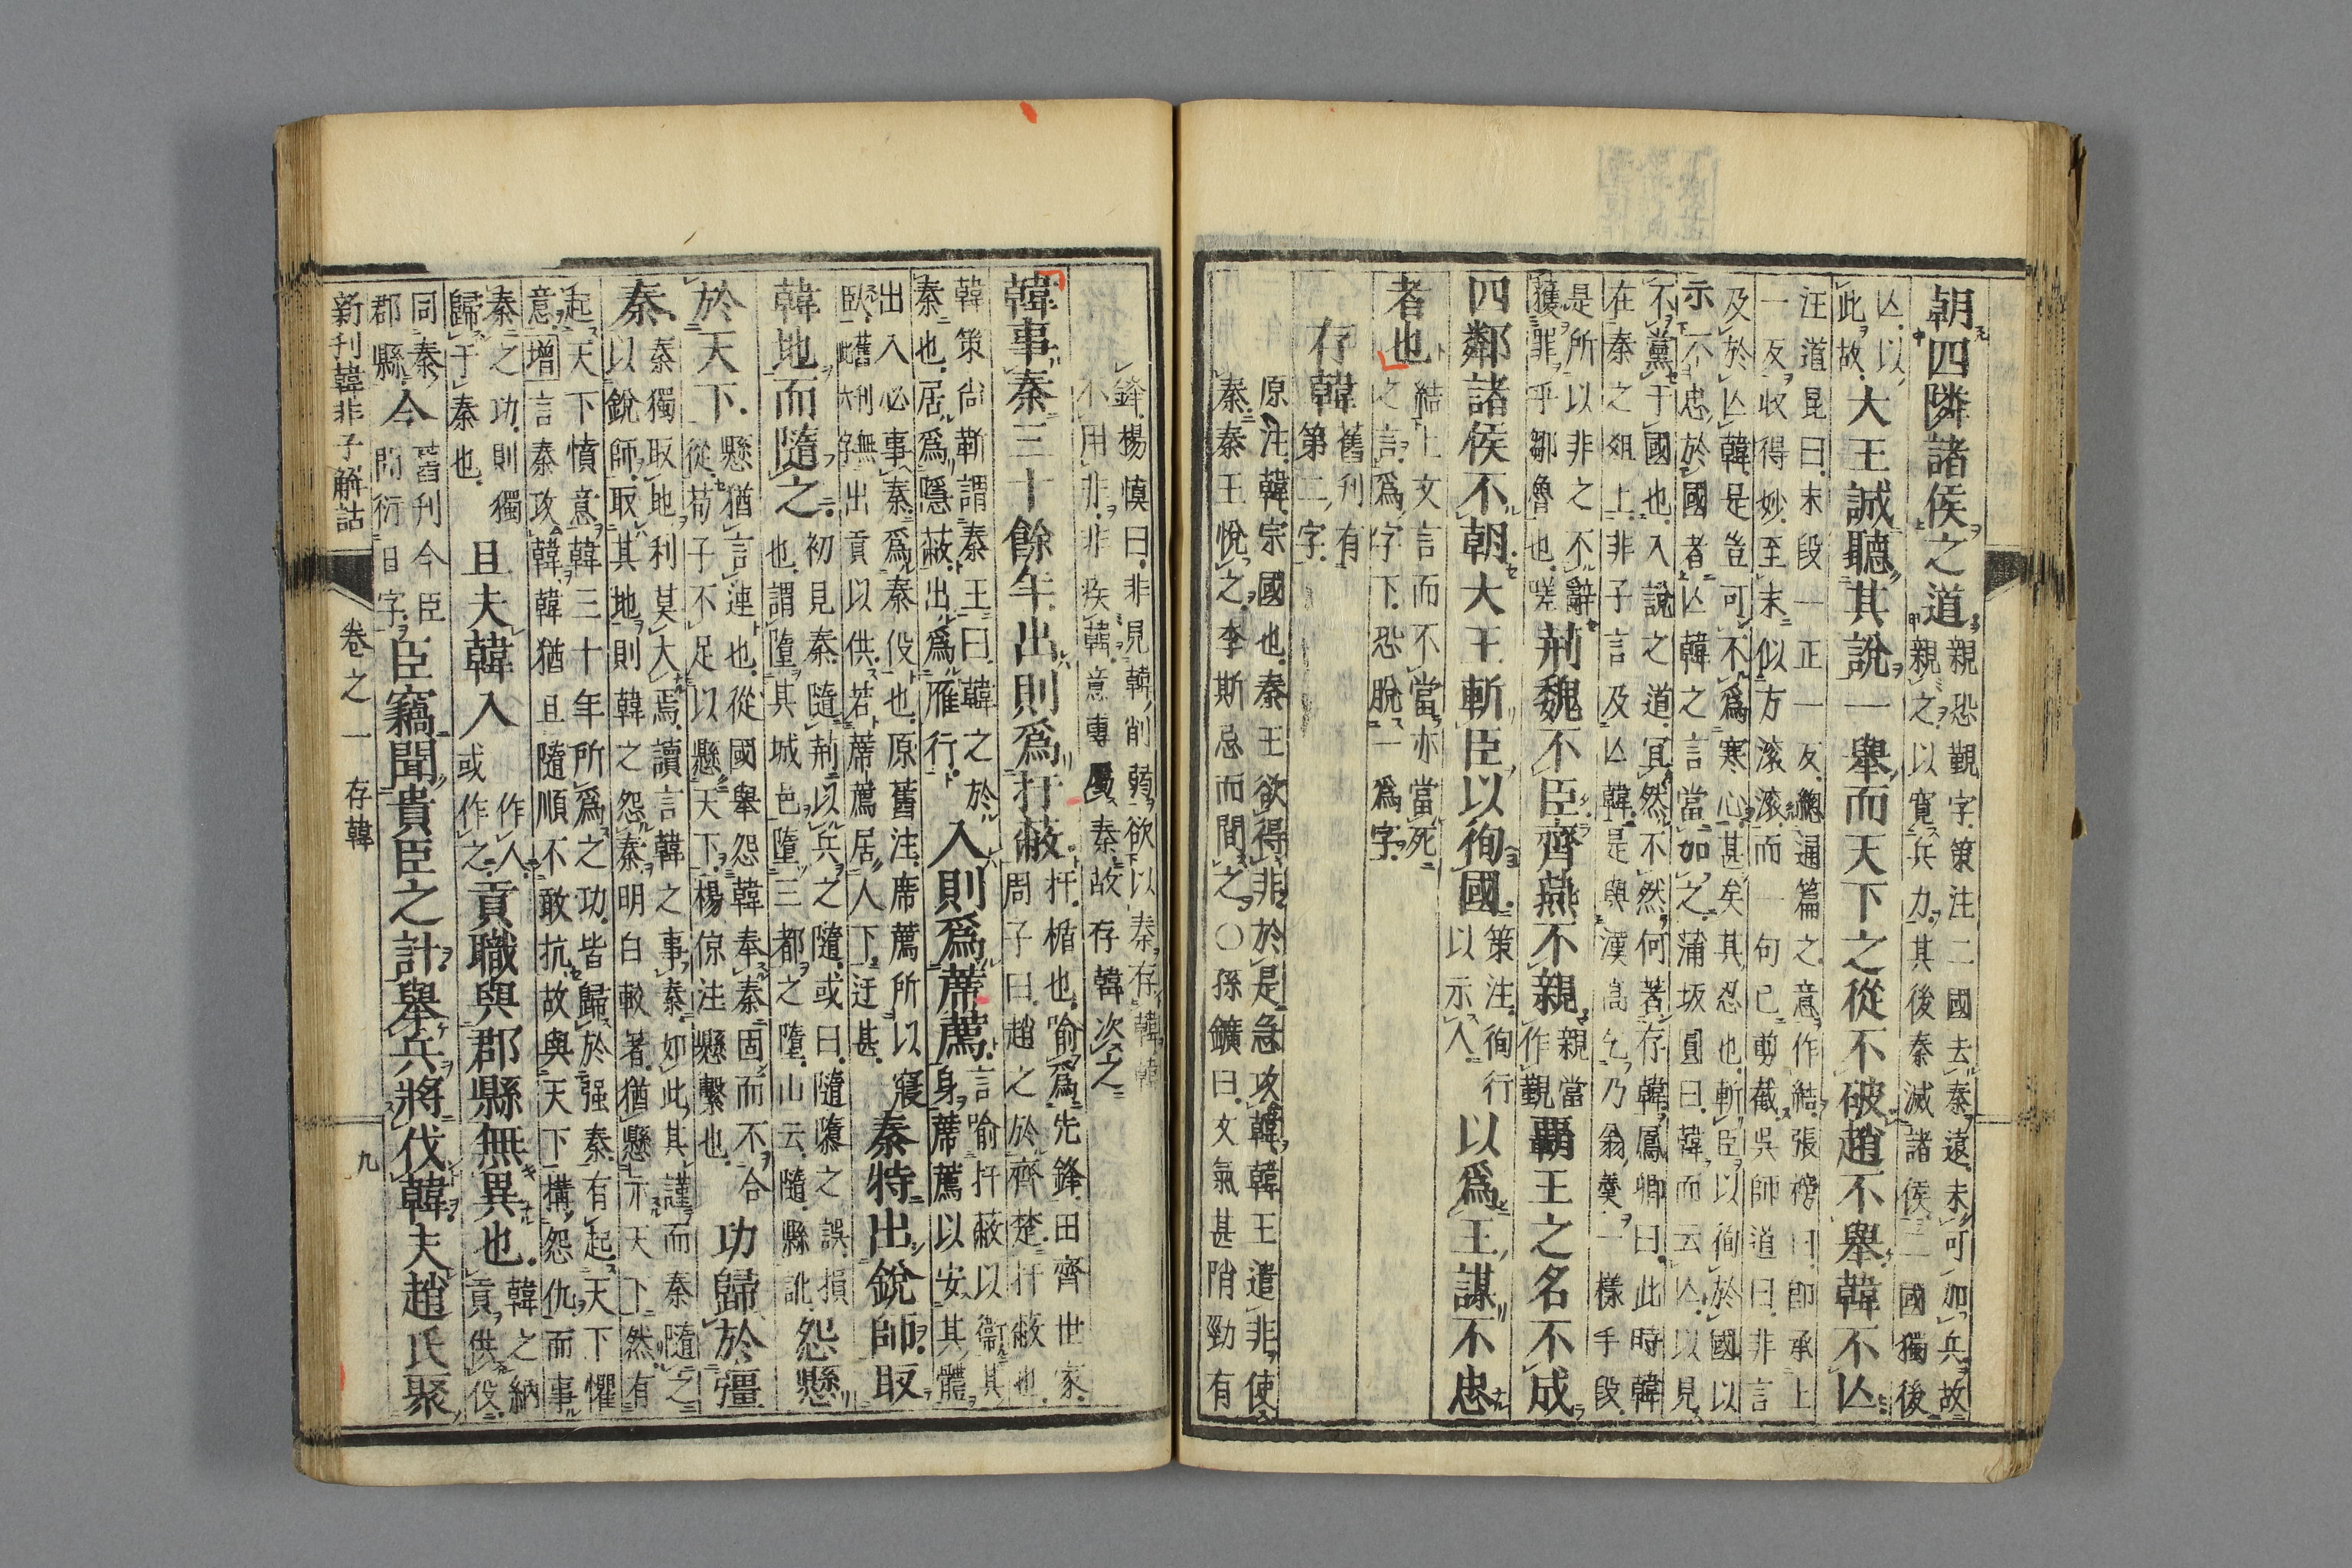 朝四隣諸侯之道親恐觀字策注二國去秦遠未可加兵故
親之以寬兵力其後秦滅諸侯二國獨後
亾以
此故大王誠聽其說一舉而天下之從不破趙不舉韓不亾
汪道昆曰末段一正一反總逼篇之意作結張榜曰即承上
一反收得妙至末似方滚滚而一句已剪截吳師道曰非言
及於亾韓是豈可不爲寒心甚矣其忍也斬臣以徇於國以
示不忠於國者亾韓之言當如之蒲坂圓曰韓而云亾以見
不黨于國也入說之道冝然不然何若存韓鳳卿曰此時韓
在秦之爼上非子言及亾韓是與漢高乞乃翁羹一樣手段
是所以非之不辭
獲罪乎鄒魯也嗟荊魏不臣齊燕不親親當
作覲覇王之名不成
四鄰諸侯不朝大王斬臣以徇國策注徇行
以示人以爲王謀不忠
者也結上文言而不當亦當死
之言爲字下恐脫一爲字
存韓舊刊有
第二字
原注韓宗國也秦王欲得非於是急攻韓韓王遣非使
秦秦王悅之李斯忌而間之〇孫鑛曰文氣甚陗勁有
鋒楊慎曰非見韓削韓欲以秦存韓韓
不用非非疾韓意專属秦故存韓次之
韓事秦三十餘年出則爲扞蔽扞楯也喻爲先鋒田齊世家
周子曰趙之於齊楚扞蔽也
韓策尚靳謂秦王曰韓之於
秦也居爲隱蔽出爲雁行入則爲蓆薦言喻扞蔽以衞其
身蓆薦以安其體
出入必事秦爲秦伇也原舊注席薦所以寢
臥舊刊無
此六字出貢以供若蓆薦居人下迂甚秦特出銳師取
韓地而隨之初見秦隨荊以兵之隨或曰隨隳之誤損
也謂墮其城邑墮三都之墮山云隨縣訛怨懸
於天下懸猶言連也從國舉怨韓奉秦固而不合
從荀子不足以懸天下楊倞注懸繫也功歸於彊
秦秦獨取地利莫大焉讀言韓之事秦如此其謹而秦隨之
以銳師取其地則韓之怨秦明白較著猶懸示天下然有
起天下憤意韓三十年所爲之功皆歸於强秦有起天下懼
意增言秦攻韓韓猶且隨順不敢抗故與天下搆怨仇而事
秦之功則獨
歸于秦也且夫韓入或作人
作之貢職與郡縣無異也韓之納
貢供伇
同秦
郡縣今舊刊今臣
間衍日字臣竊聞貴臣之計舉兵將伐韓夫趙氏聚
新刊韓非子解詁
卷之一
存韓
九